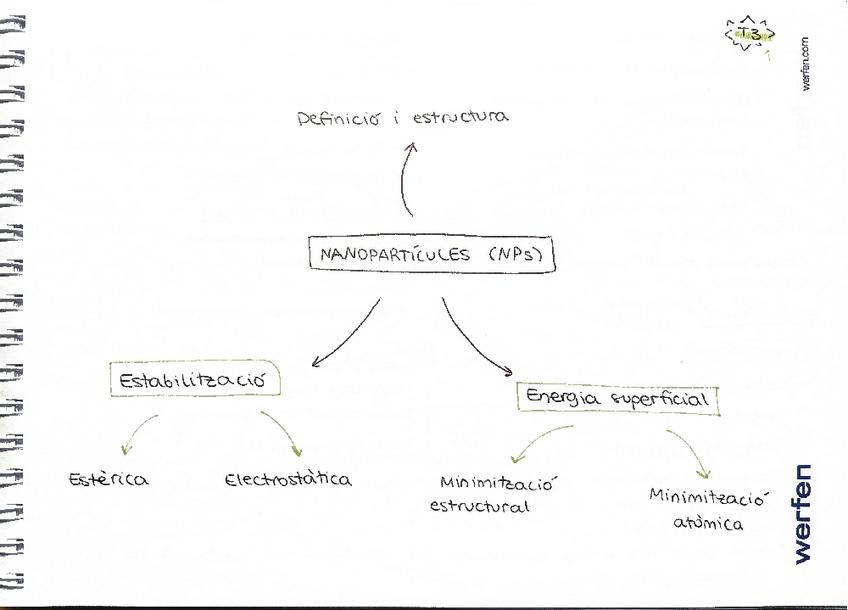 T3
werfen.com
Definició i estructura
NANOPARTÍCULES (NPs)
Estabilització
Energia superficial
Estèrica
Electrostàtica
Minimització
estructural
Minimització
atòmica
werfen